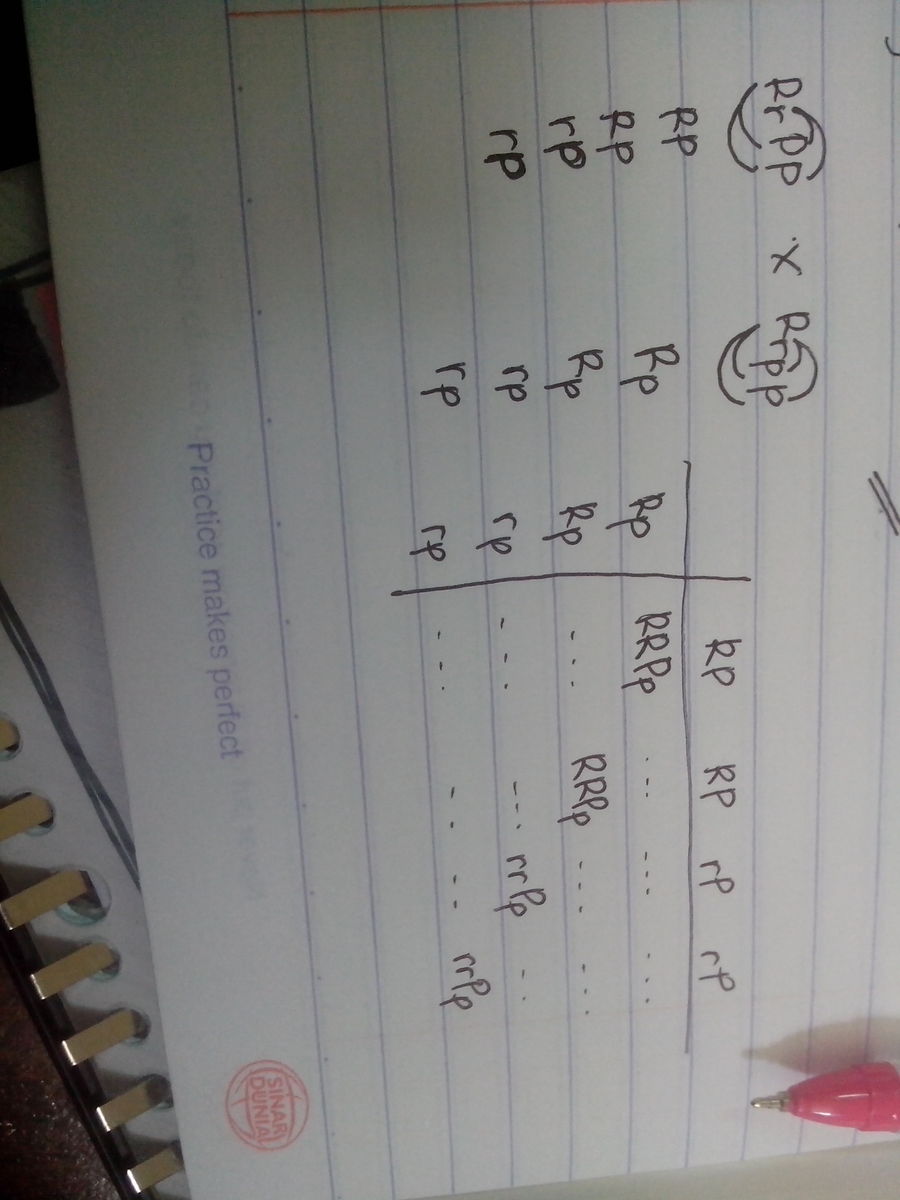 RrPP x Rrpp
RP Rp
RP Rp
rP rp
rP rp
RP RP rP rP
Rp RRPp ... ... ...
Rp ... RRPp ... ...
rp ... ... rrPp ...
rp ... ... ... rrPp
Practice makes perfect
SINAR
DUNIA